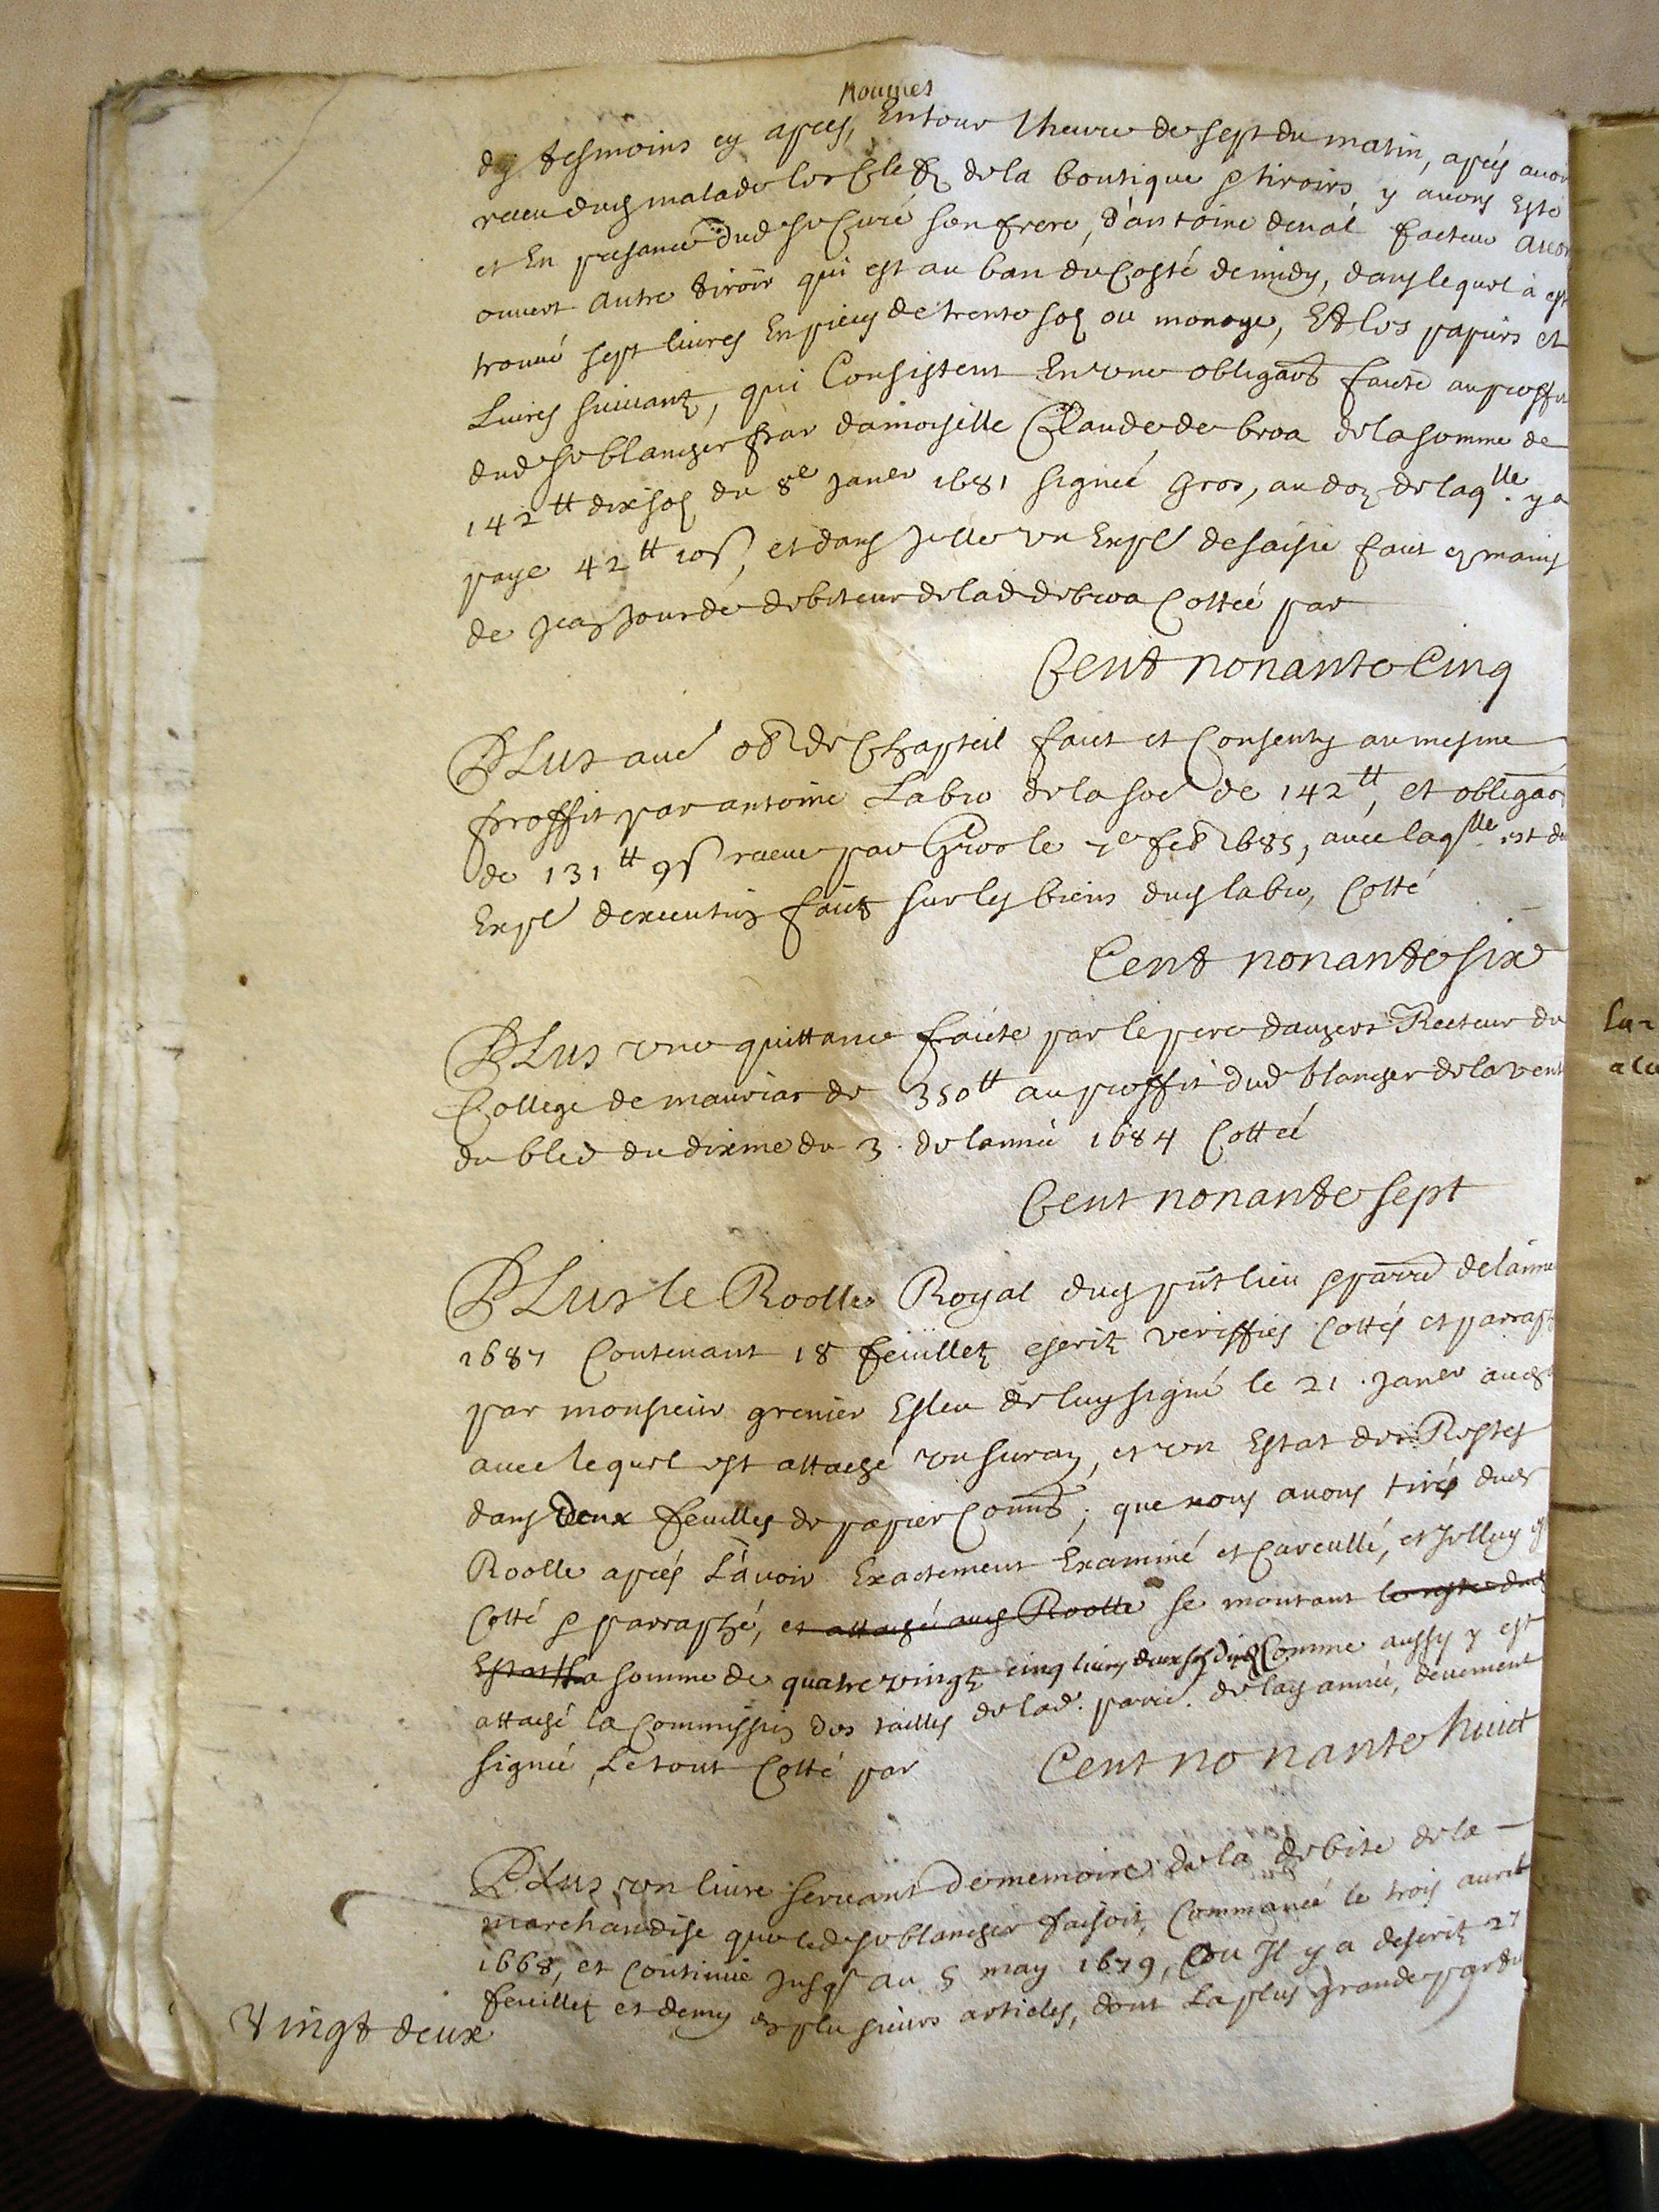 nommes
des tesmoins cy apres, Entour lheure de sept du matin, apres avoir
receu dud malade les Clefz de la boutique & tiroirs y avons Esté
et En presance dud sr Curé son frere, d'antoine deval facteur avons
ouvert autre tiroir qui est au ban du Costé de midy, dans lequel à esté
trouvé sept livres En pieces de trente solz ou monoye, Et les papiers et
Livres suivantz, qui Consistent En une obligaõn faicte au proffit
dud sr blancher par damoiselle Claude de broa de la somme de
142 tt dix solz du 8e Janer 1681 signée Gros, au doz de laqlle y a
paye 42 tt 10 s, et dans Jelle un Expl de saisie faict es mains
de Jean Jourde debiteur de lad de broa Cottée par
Cent nonante Cinq
PLus aud obl de Chapteil faict et Consenty au mesme
proffit par antoine Labro de la some de 142 tt, et obligaõn
de 131 tt 9 s receue par Gros le 7e feb 1685, avec laqlle est du
Expl dexecution faict sur les biens dud labro, Cotté
Cent nonante six
PLus une quittance faicte par le pere daugers Recteur du
College de mauriac de 350 tt au proffit dud blancher de la vente
du bled du dixme du 3. de lannée 1684 Cottée
Cent nonante sept
PLus le Roolle Royal dud pñt lieu & parre de lannee
1687 Contenant 18 feuilletz escritz veriffies Cottés et parraphes
par monsieur grenier Esleu de luy signé le 21. Janer aud
avec lequel est attaché un suran, et un Estat des Restes
dans deux feuilles de papier Comũ; que nous avons tirés dud
Roolle apres L'avoir Exactement Examiné et Careullé, et Jcelluy
Cotté & parraphé, et attaché aud Roolle se montant le reste dud
Estat La somme de quatre vingtz cinq livres deux solz Comme aussy y est
attaché la Commission des tailles de lad. parre. de lad année, deuement
signée, Le tout Cotté par Cent nonante huict
PLus un livre servant de memoire de la debite de la
marchandise que led sr blancher faisoit, Commancé le trois avril
1668, et Continué Jusqs au 5 may 1679, ou Il y a descritz 27
feuilletz et demy en plusieurs articles, dont La plus grande partie
Vingt deux